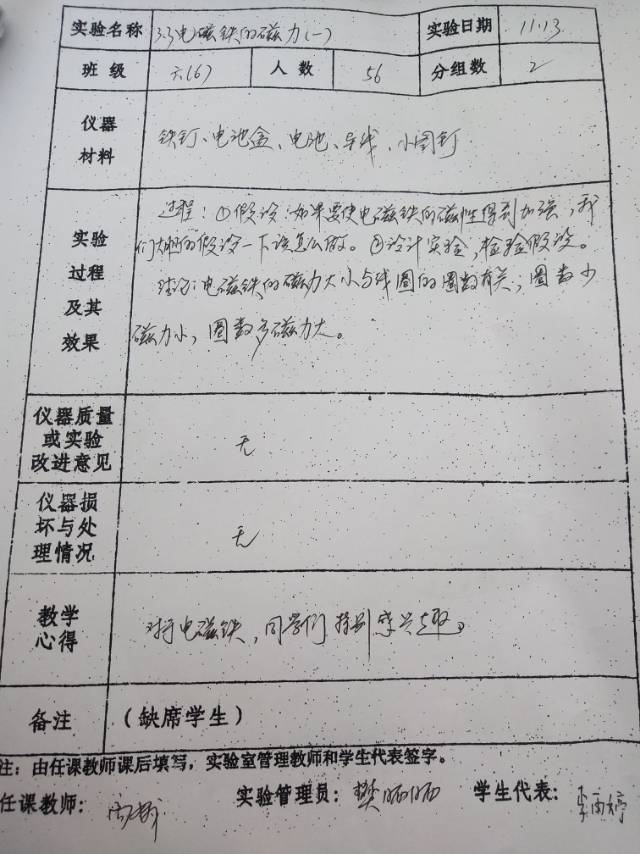 实验名称 3.3电磁铁的磁力(一) 实验日期 11.13
班 级 六(6) 人 数 56 分组数 2
仪器
材料
铁钉、电池盒、电池、导线、小图钉
实验
过程
及其
效果
过程：①假设：如果要使电磁铁的磁性得到加强，我
们大胆的假设一下该怎么做。②设计实验，检验假设。
结论：电磁铁的磁力大小与线圈的圈数有关，圈数少
磁力小，圈数多磁力大。
仪器质量
或实验
改进意见
无
仪器损
坏与处
理情况
无
教学
心得
对于电磁铁，同学们特别感兴趣。
备注 （缺席学生）
注：由任课教师课后填写，实验室管理教师和学生代表签字。
任课教师： 实验管理员：樊丽丽 学生代表：